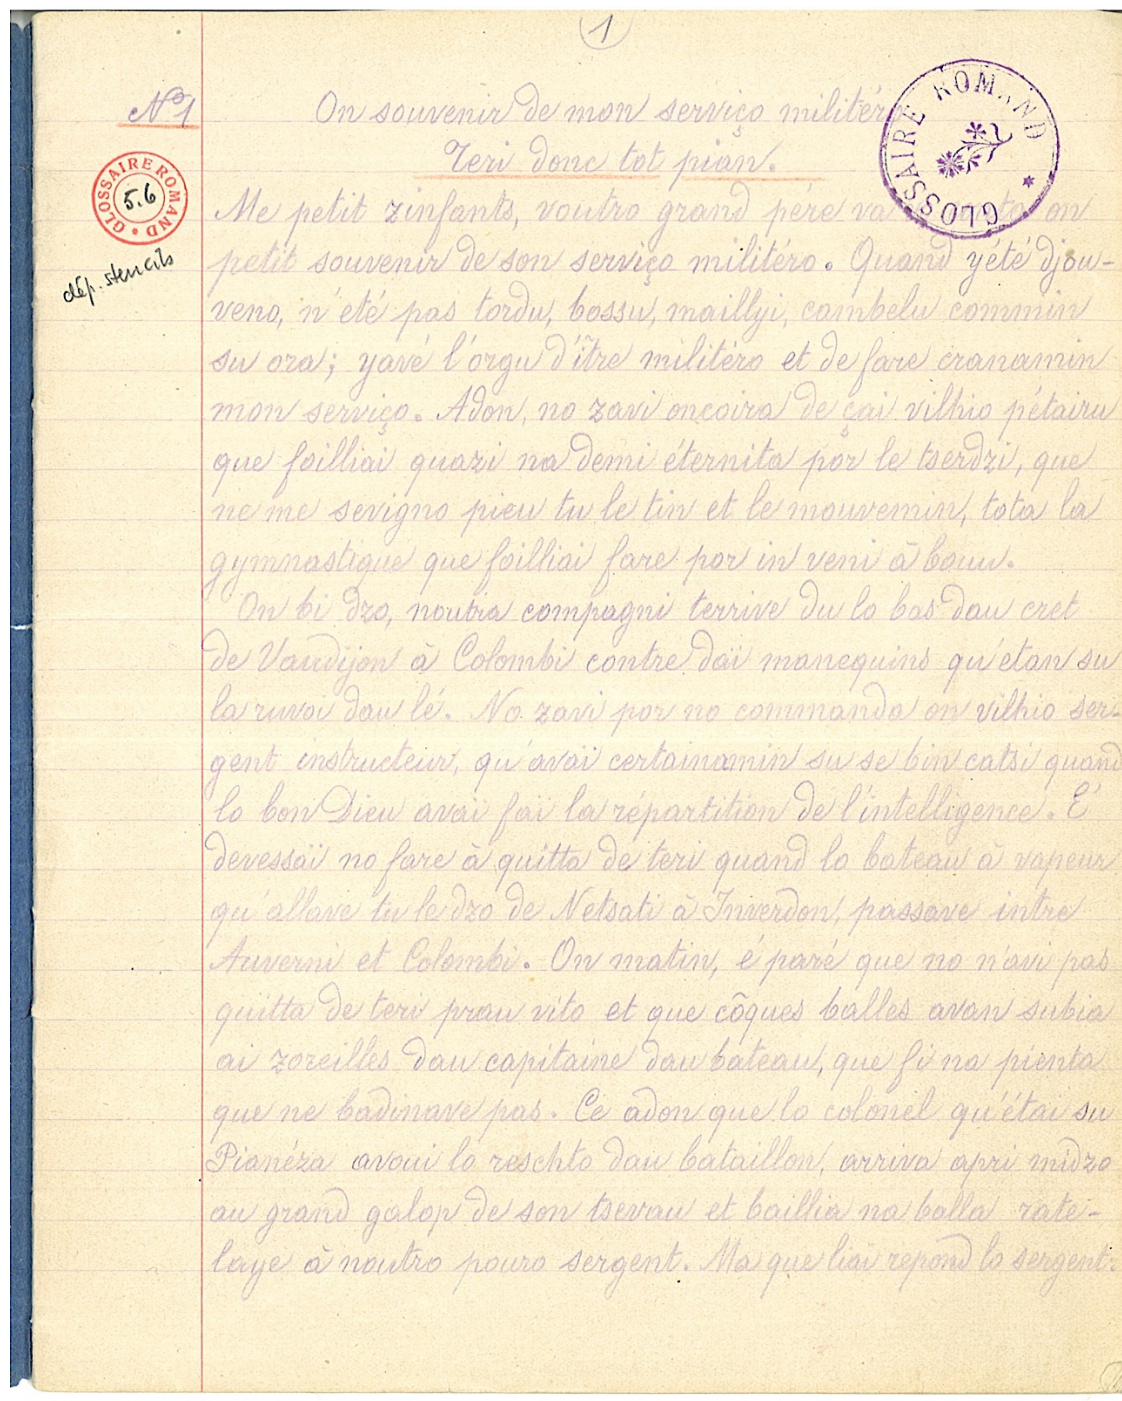 1
No 1
On souvenir de mon serviço militéro
Teri donc tot pian.
GLOSSAIRE ROMAND
GLOSSAIRE ROMAND
5.6
dép. stencils
Me petit zinfants, voutro grand pére va on
petit souvenir de son serviço militéro. Quand y été djou-
veno, n'été pas tordu, bossu, maillyi, cambelu commin
su ora; yavé l'orgu d'itre militéro et de fare cranamin
mon serviço. Adon, no zavi oncoira de çai vilhio pétairu
que foilliai quazi na demi éternita por le tserdzi, que
ne me sevigno pieu tu le tin et le mouvemin, tota la
gymnastique que foilliai fare por in veni à bouu.
On bi dzo, noutra compagni terrive du lo bas dau cret
de Vaudijon à Colombi contre daï manequins qu'étan su
la ruvoi dau lé. No zavi por no commanda on vilhio ser-
gent instructeur, qu'avaï certainamin su se bin catsi quand
lo bon Dieu avai faï la répartition de l'intelligence. E'
devessaï no fare à quitta de teri quand lo bateau à vapeur
qu'allave tu le dzo de Netsati à Inverdon, passave intre
Auverni et Colombi. On matin, é paré que no n'avi pas
quitta de teri prau vito et que côques balles avan subia
ai zoreilles dau capitaine dau bateau, que fi na pienta
que ne badinave pas. Ce adon que lo colonel qu'étai su
Pianéza avoui lo reschto dau bataillon, arriva apri midzo
au grand galop de son tsevau et baillia na balla rate-
laye à noutro pouro sergent. Ma que liai repond lo sergent: